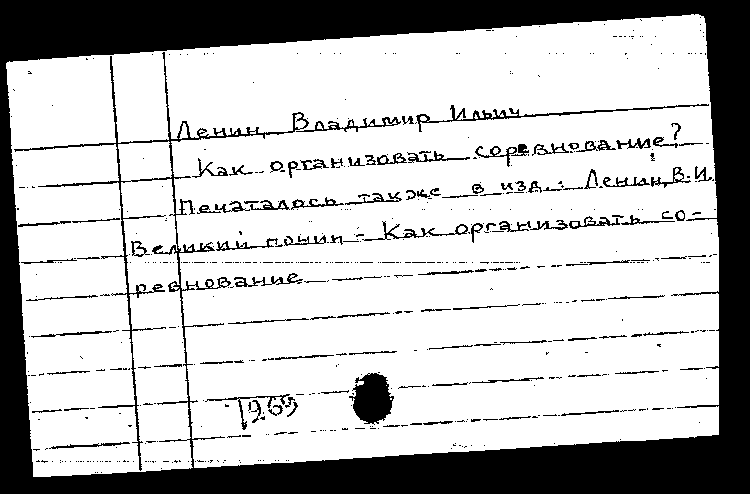 Ленин, Владимир Ильич.
Как организовать соревнование?
Печаталось также в изд.: Ленин, В.И.
Великий почин - Как организовать со-
ревнование
1269